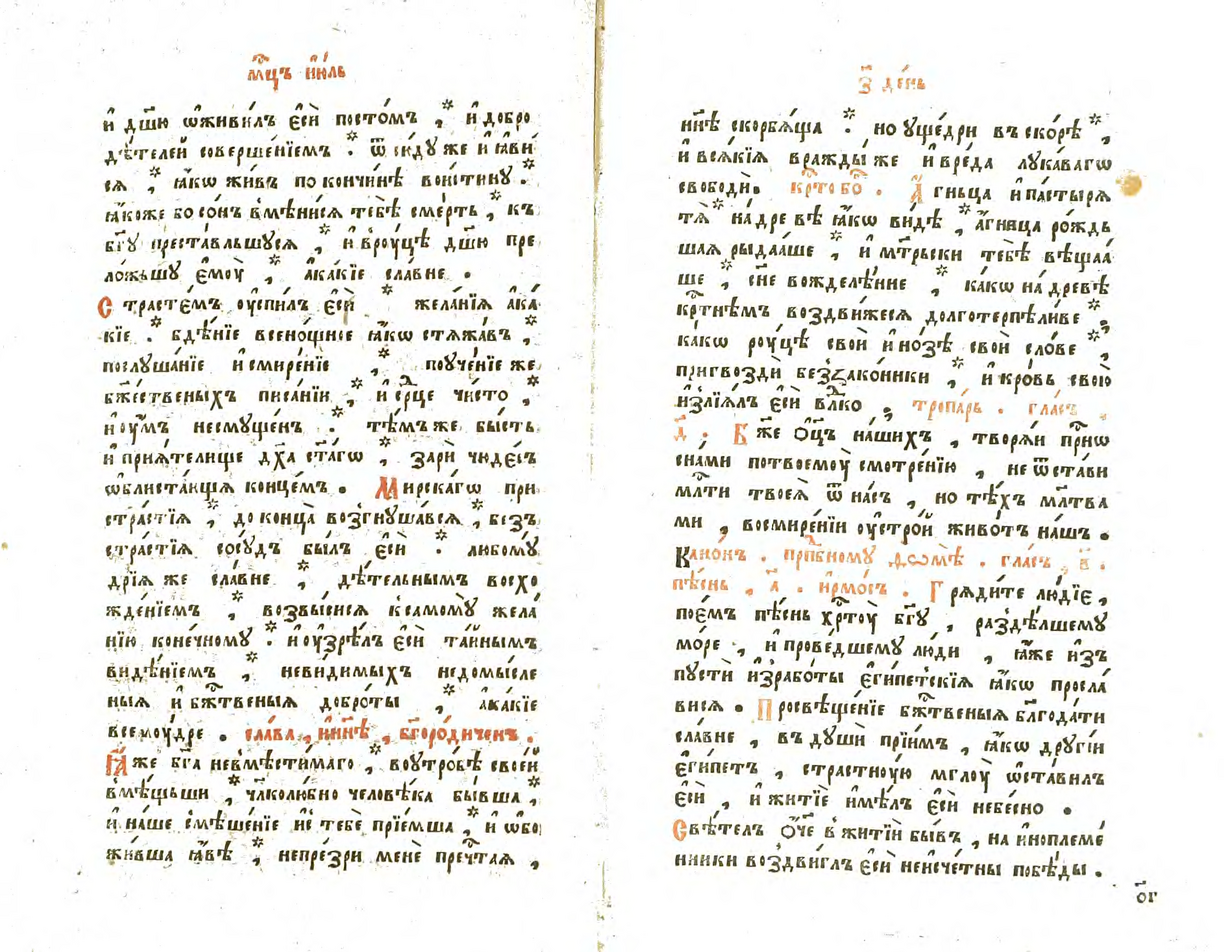 мц҃ъ і҆ю́ль
и҆ дш҃ю ѡ҆живи́лъ є҆сѝ посто́мъ , * и҆ добро
дѣ́телей соверше́нїемъ . * ѿ сю́дꙋ же и҆ ꙗ҆ви́
ся , * ꙗ҆́кѡ жи́въ по кончи́нѣ вои́стинꙋ . *
ꙗ҆́коже бо со́нъ вмѣни́ся тебѣ̀ сме́рть , * къ
бг҃ꙋ преста́вльшꙋся , * и҆ врꙋ́цѣ дш҃ю пре
ло́жьшꙋ є҆мꙋ̀ , * а҆ка́кїе сла́вне .
Страсте́мъ оу҆спи́лъ є҆сѝ * жела́нїя а҆ка́
кїе . * бдѣ́нїе всено́щное ꙗ҆́кѡ стяжа́въ , *
послꙋша́нїе и҆ смире́нїе , * поꙋче́нїе же
бж҃ественыхъ писа́нїи , * и҆ ср҃це чи́сто , *
и҆ оу҆́мъ несмꙋще́нъ . * тѣ́мъ же бы́сть
и҆ прия́телище дх҃а ст҃а́гѡ , * зари́ чюде́съ
ѡ҆блиста́ющїя конце́мъ . Мирска́гѡ при
стра́стїя , * до конца̀ возгнꙋша́вся , * безъ
стра́стїя сосꙋ́дъ бы́лъ є҆сѝ . * любомꙋ́
дрїя же сла́вне , * дѣ́тельнымъ восхо
жде́нїемъ , * возвы́сися к самомꙋ̀ жела́
нїю коне́чномꙋ . * и҆ оу҆зрѣ́лъ є҆сѝ та́йнымъ
видѣ́нїемъ , * неви́димыхъ недомы́сле
ныя и҆ бж҃твеныя добро́ты , * а҆ка́кїе
всемꙋ́дре . сла́ва , и҆ ны́нѣ , бг҃оро́диченъ .
Ꙗ҆́же бг҃а невмѣсти́маго , * воꙋтро́бѣ свое́й
вмѣ́щьши , * чл҃колю́бно человѣ́ка бы́вша , *
и҆ на́ше смѣше́нїе и҆с тебѐ прїе́мша , * и҆ ѡ҆бо
жи́вша ꙗ҆́вѣ , * непре́зри менѐ преч҃тая ,
з҃ де́нь
ны́нѣ скорбя́ща . * но оу҆ще́дри въ ско́рѣ , *
и҆ вся́кїя вражды́ же и҆ вре́да лꙋка́вагѡ
свободѝ . кр҃то бо . А҆́гньца и҆ па́стыря
тя̀ * на́ древѣ ꙗ҆́кѡ ви́дѣ , * а҆́гница ро́ждь
шая рыда́аше , * и҆ мт҃рьски тебѣ̀ вѣща́а
ше , * сн҃е вожделѣ́нне , * ка́кѡ на́ древѣ
кр҃тнѣмъ воздви́жеся долготерпѣли́ве ; *
ка́кѡ рꙋ́цѣ свои̑ и҆ но́зѣ свои̑ сло́ве , *
пригвоздѝ беззако́нники , * и҆ кро́вь свою̀
и҆злїя́лъ є҆сѝ вл҃ко ; тропа́рь . гла́съ ,
д҃ . Бж҃е ѻ҆ц҃ъ на́шихъ , творя́и при́нѡ
сна́ми по твоемꙋ̀ смотре́нїю , не ѿста́ви
мл҃ти твоея̀ ѿ на́съ , но тѣ́хъ мл҃тва
ми , восмире́нїи оу҆стро́й живо́тъ на́шъ .
Кано́нъ . прп҃бномꙋ ѳѡмѣ̀ . гла́съ , в҃ .
пѣ́снь , а҃ . і҆рмо́съ . Гряди́те лю́дїе ,
пое́мъ пѣ́снь хр҃тꙋ̀ бг҃ꙋ , раздѣ́лшемꙋ
мо́ре , и҆ прове́дшемꙋ лю́ди , ꙗ҆̀же и҆зъ
пꙋстѝ и҆зрабо́ты є҆ги́петскїя ꙗ҆́кѡ просла́
вися . Просвѣще́нїе бж҃твеныя благода́ти
сла́вне , въ дꙋшѝ прїи́мъ , ꙗ҆́кѡ дрꙋгі́и
є҆ги́петъ , страстнꙋ́ю мглꙋ̀ ѡ҆ста́вилъ
є҆сѝ , и҆ житїѐ и҆мѣ́лъ є҆сѝ небе́сно .
Свѣ́телъ ѻ҆́ч҃е вжитїѝ бы́въ , на и҆ноплеме́
нники воздви́глъ є҆сѝ неисче́тны побѣ́ды .
ог҃